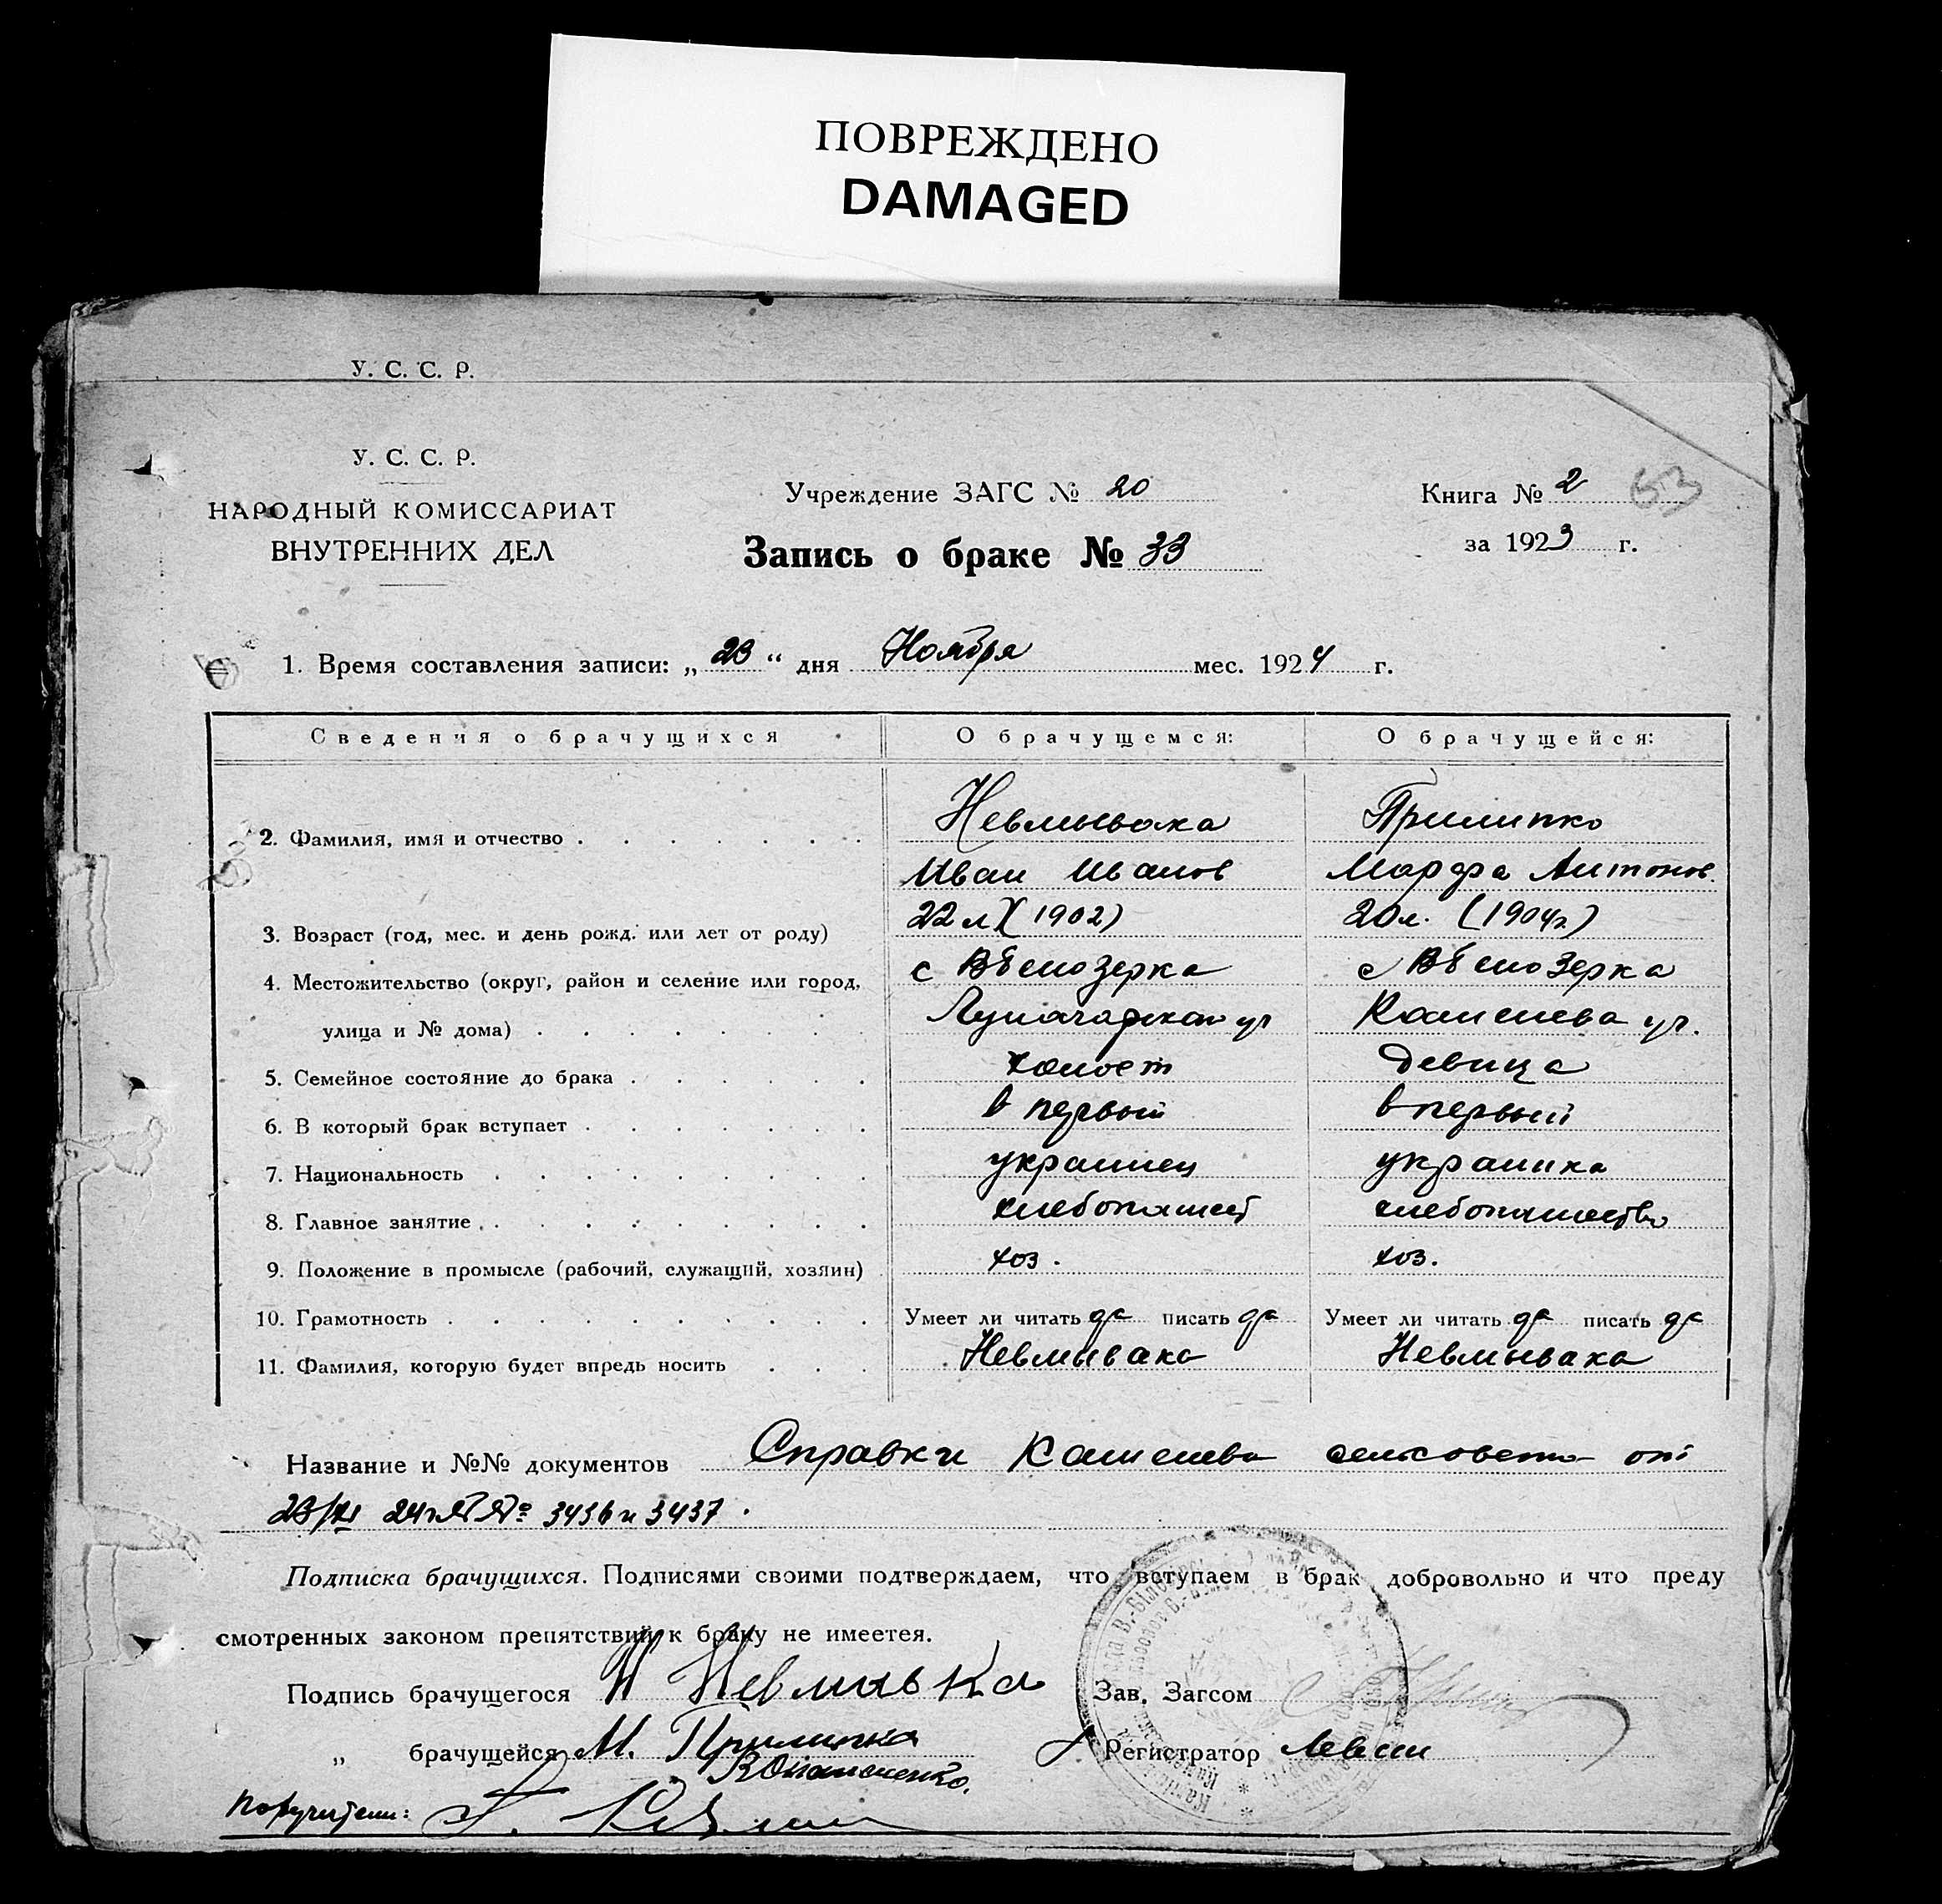 ПОВРЕЖДЕНО
DAMAGED
У. С. С. Р.
У. С. С. Р.
НАРОДНЫЙ КОМИССАРИАТ
ВНУТРЕННИХ ДЕЛ
Учреждение ЗАГС № 20
Книга № 2 53
Запись о браке № 33
за 1923 г.
1. Время составления записи: „ 23 “ дня Ноября мес. 1924 г.
Сведения о брачущихся О брачущемся: О брачущейся:
2. Фамилия, имя и отчество Невмывака Прилипко
Иван Иванов Марфа Антонов.
3. Возраст (год, мес. и день рожд. или лет от роду) 22 л (1902) 20 л. (1904 г.)
4. Местожительство (округ, район и селение или город, с ВБелозерка с ВБелозерка
улица и № дома) Луначарская ул Каменева ул.
5. Семейное состояние до брака холост девица
6. В который брак вступает в первый в первый
7. Национальность украинец украинка
8. Главное занятие хлебопашест хлебопашество
9. Положение в промысле (рабочий, служащий, хозяин) хоз. хоз.
10. Грамотность Умеет ли читать да писать да Умеет ли читать да писать да
11. Фамилия, которую будет впредь носить Невмывака Невмывака
Название и №№ документов Справки Каменева сельсовета от
23/XI 24 г №№ 3436 и 3437.
Подписка брачущихся. Подписями своими подтверждаем, что вступаем в брак добровольно и что преду
смотренных законом препятствий к браку не имеется.
Подпись брачущегося И Невмывка Зав. Загсом
„ брачущейся М. Прилипка Регистратор Левин
Поручители: